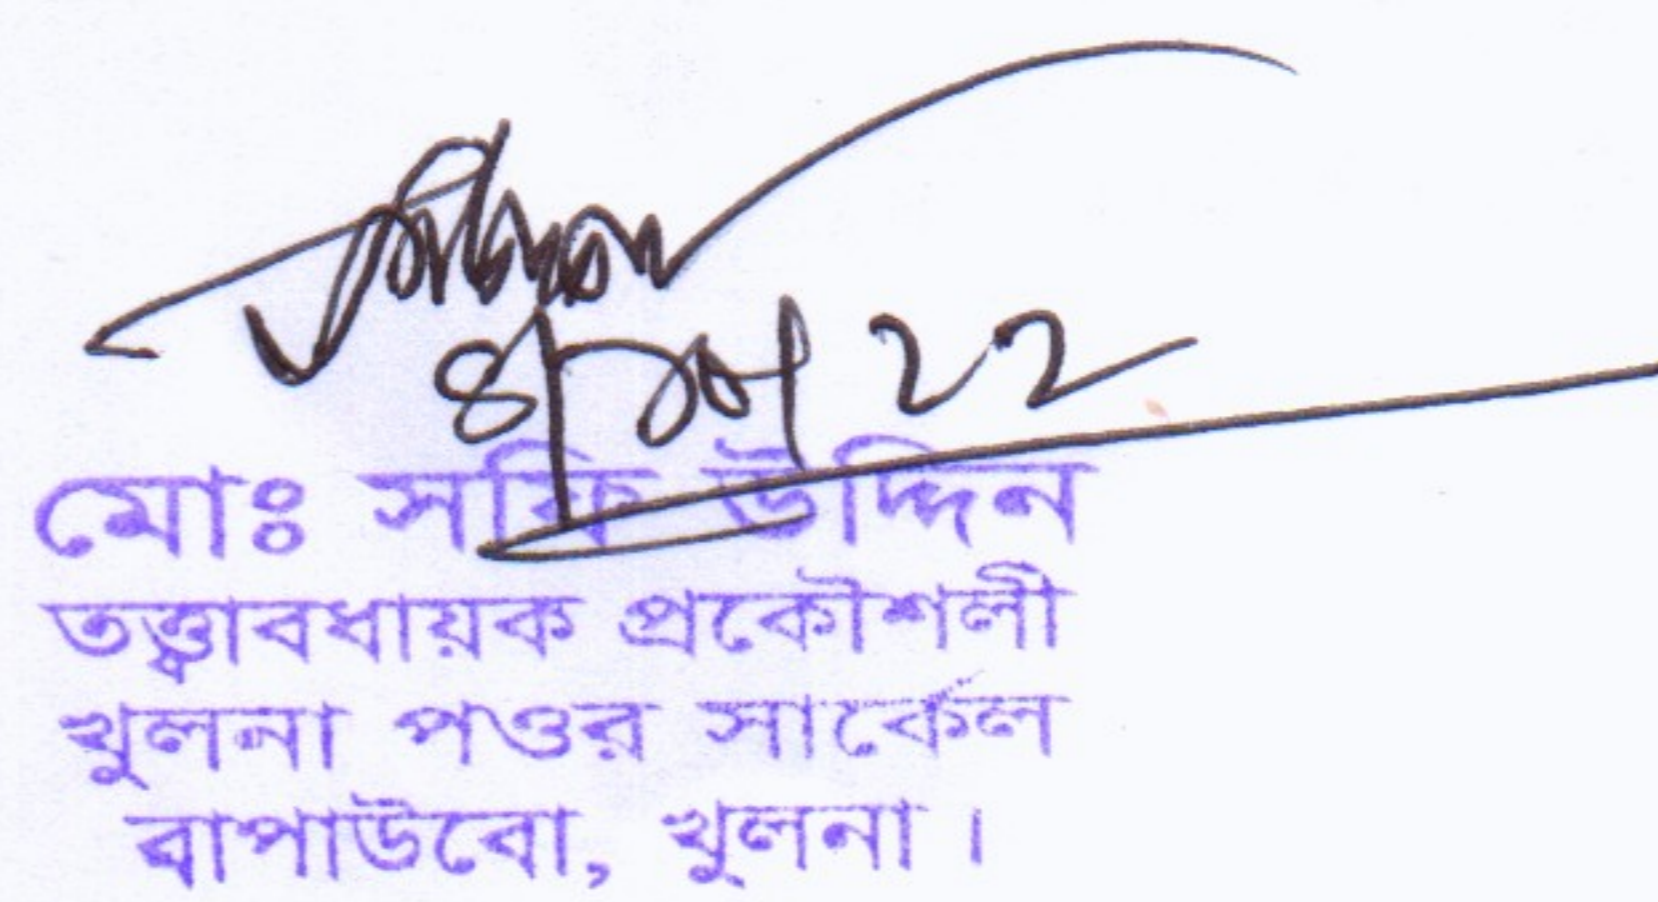 মোঃ সফি উদ্দিন
তত্ত্বাবধায়ক প্রকৌশলী
খুলনা পওর সার্কেল
বাপাউবো, খুলনা।